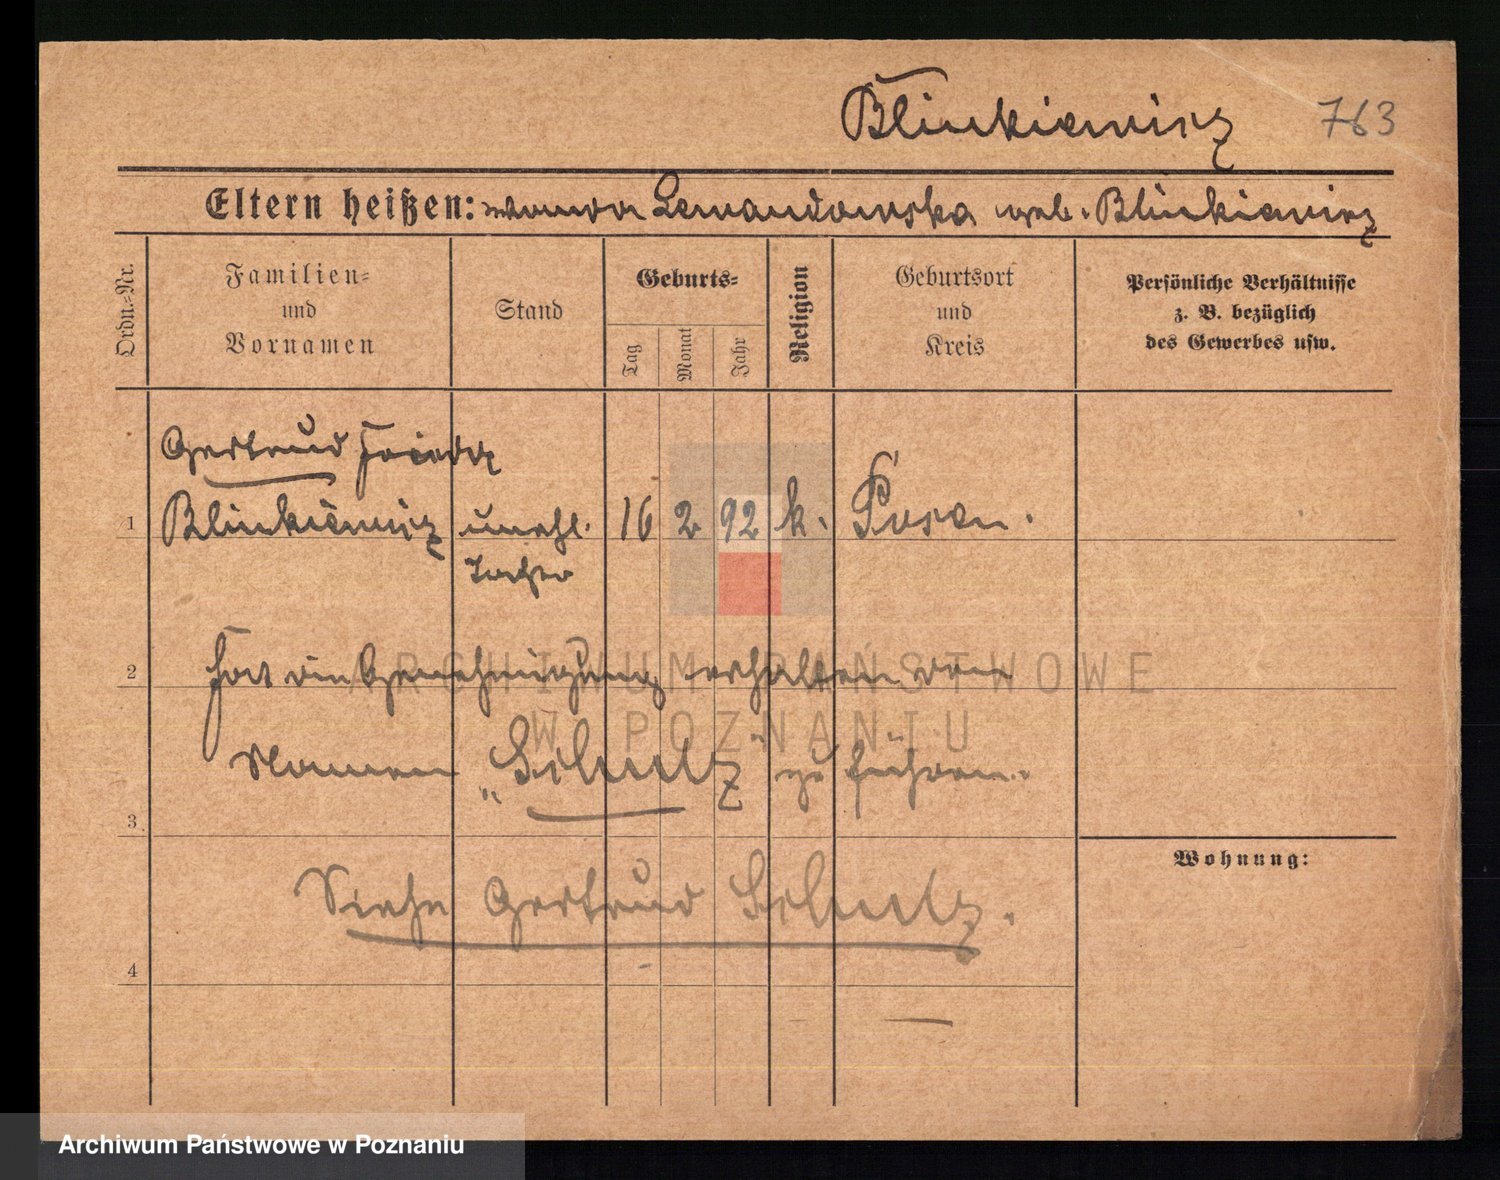 Blinkiewicz 763
Eltern heißen: Wanda Lewandowska geb. Blinkiewicz
Ordn.-Nr.
Familien-
und
Vornamen
Stand
Geburts-
Tag
Monat
Jahr
Religion
Geburtsort
und
Kreis
Persönliche Verhältnisse
z. B. bezüglich
des Gewerbes usw.
Gertrud Frieda
1 Blinkiewicz unehl. 16 2 92 k. Posen.
Tochter
2 hat die Genehmigung erhalten den
Namen „Schultz" zu führen.
3
Wohnung:
Siehe Gertrud Schultz.
4
ARCHIWUM PAŃSTWOWE
W POZNANIU
Archiwum Państwowe w Poznaniu